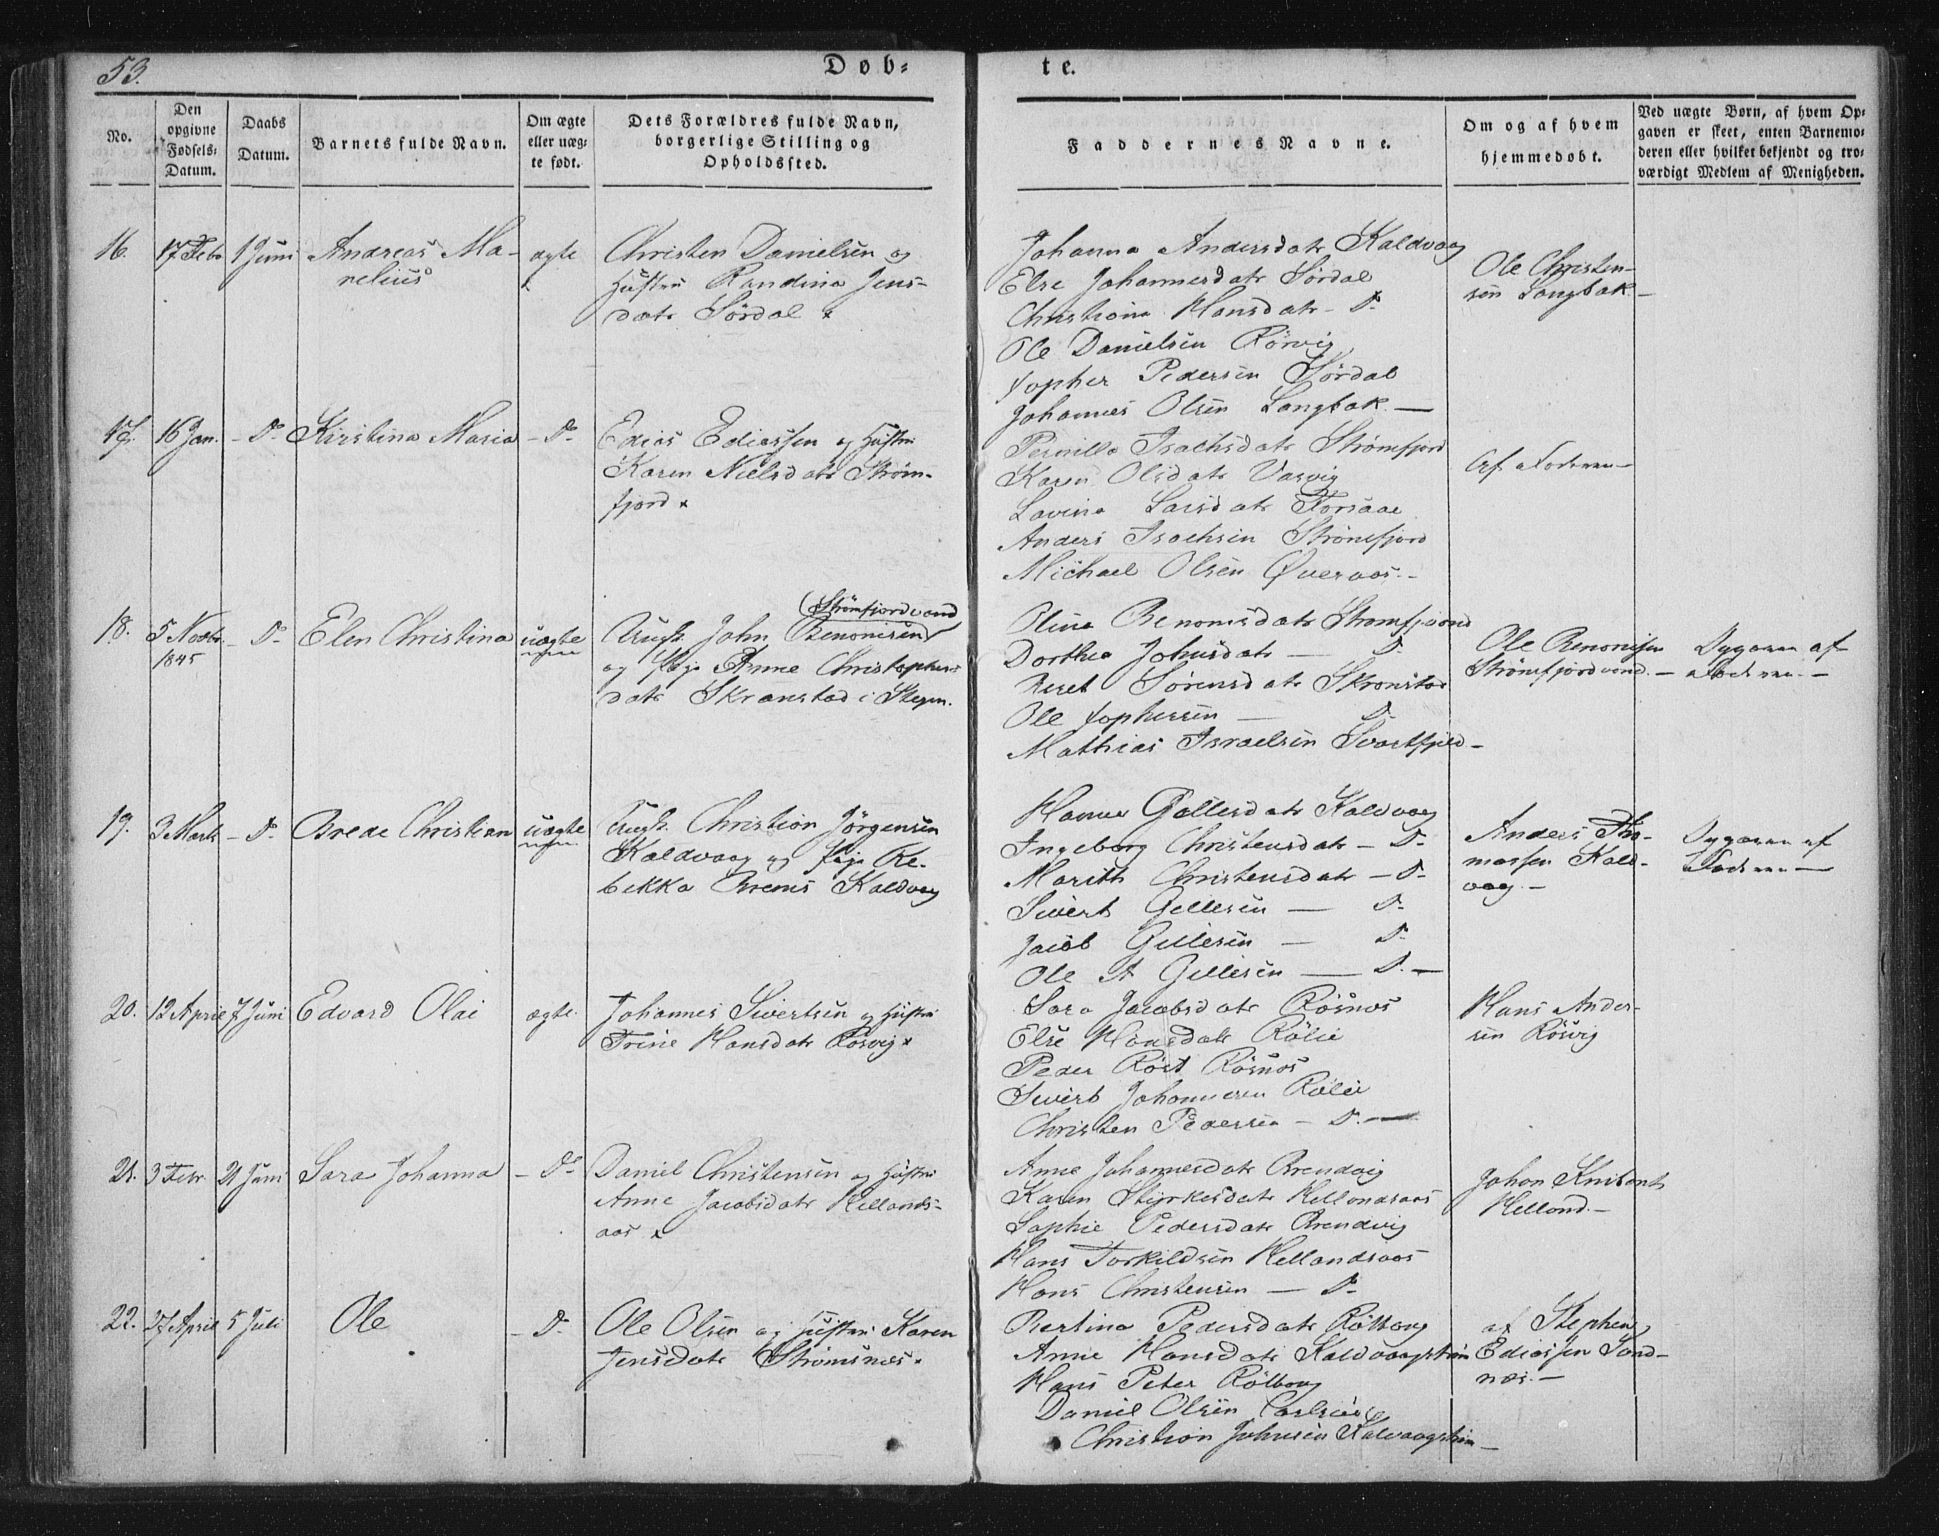 53.
Døb-
te.
No.
Den
opgivne
Fødsels-
Datum.
Daabs
Datum.
Barnets fulde Navn.
Om ægte
eller uæg-
te født.
Dets Forældres fulde Navn,
borgerlige Stilling og
Opholdssted.
Faddernes Navne.
Om og af hvem
hjemmedøbt.
Ved uægte Børn, af hvem Op-
gaven er skeet, enten Barnemo-
deren eller hvilket bekjendt og tro-
værdigt Medlem af Menigheden.
16. 17 Febr 1 Juni Andreas Ma-
relius
ægte
Christen Danielsen og
Hustru Randina Jens-
datr Sørdal
Johanna Andersdatr Kaldvaag
Else Johannesdatr Sørdal
Christiana Hansdatr - Do
Ole Danielsen Rørvig
Topher Pedersen Sørdal
Johannes Olsen Langbak -
Ole Christen-
sen Langbak -
17. 16 Jan. - Do Kirstina Maria - Do
Edias Ediassen og Hustru
Karen Nielsdatr Strøm-
fjord
Pernilla Isachsdatr Strømfjord
Karen Olsdatr Vasvig
Lavina Larsdatr Forsaae
Anders Isachsen Strømfjord
Michael Olsen Øveraas -
Af Moderen -
18. 5 Novbr.
1845
- Do Elen Christina uægte
Ungk. John Benonisen
Strømfjordvand
og Pige Anne Christophers-
datr Skranstad i Stegen.
Olina Benonisdatr Strømfjord
Dorthea Johnsdatr - Do
Beret Sørensdatr Skranstad
Ole Tophersen - Do
Mathias Israelsen Svartfjeld -
Ole Benonisen
Strømfjordvand. -
Opgaven af
Moderen -
19. 3 Marts - Do Brede Christian uægte
Ungk. Christian Jørgensen
Kaldvaag og Pige Re-
bekka Brems Kaldvaag
Hanna Gellesdatr Kaldvaag
Ingeborg Christensdatr - Do
Marith Christensdatr - Do
Sivert Gellesen - Do
Jacob Gellesen - Do
Ole A Gellesen - Do -
Anders Tho-
massen Kald-
vaag. -
Opgaven af
Moderen -
20. 12 April 7 Juni Edvard Olai ægte.
Johannes Sivertsen og Hustru
Trine Hansdatr Røsvig
Sara Jacobsdatr Røsnæs
Else Hansdatr Rølie
Peder Røst Røsnæs
Sivert Johannesen Rølie
Christen Pedersen - Do -
Hans Ander-
sen Røsvig
21. 3 Febr. 21 Juni Sara Johanna - Do
Daniel Christensen og Hustru
Anne Jacobsdatr Hellands-
aas
Anne Johannesdatr Brendvig
Karen Styrkesdatr Hellandsaas
Sophie Pedersdatr Brendvig
Hans Torkildsen Hellandsaas
Hans Christensen - Do
Johan
Helland. -
22. 27 April 5 Juli Ole - Do
Ole Olsen og Hustru Karen
Jensdatr Strømsnæs
Bertina Pedersdatr
Anne Hansdatr Kaldvaagstrøm
Hans Peter
Daniel Olsen
Christian Johnsen Kalvaagstrøm -
af Stephen
Ediassen Sand-
næs. -